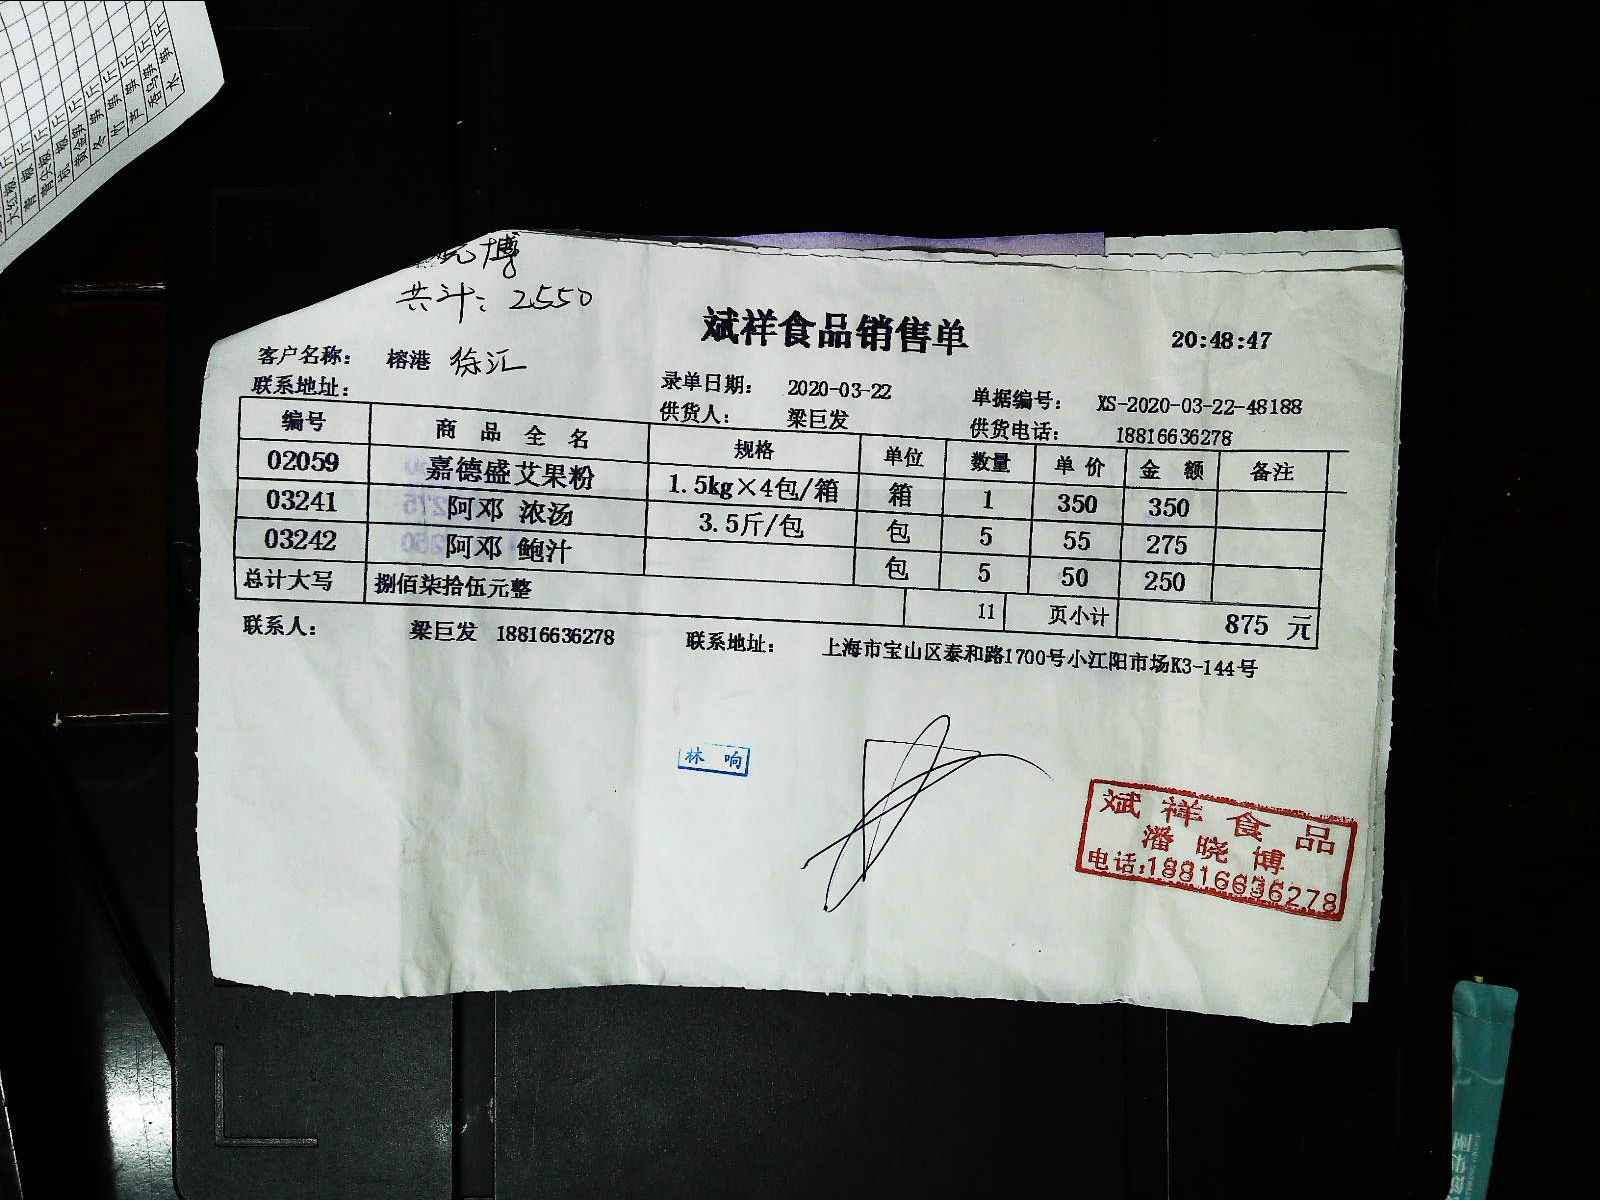 博
共计：2550
斌祥食品销售单
20:48:47
客户名称： 榕港 徐汇
录单日期： 2020-03-22
单据编号： XS-2020-03-22-48188
联系地址：
供货人： 梁巨发
供货电话： 18816636278
编号 商品全名 规格 单位 数量 单价 金额 备注
02059 嘉德盛艾果粉 1.5kg×4包/箱 箱 1 350 350
03241 阿邓 浓汤 3.5斤/包 包 5 55 275
03242 阿邓 鲍汁 包 5 50 250
总计大写 捌佰柒拾伍元整 11 页小计 875 元
联系人： 梁巨发 18816636278 联系地址： 上海市宝山区泰和路1700号小江阳市场K3-144号
林 响
斌祥食品
潘晓博
电话:18816636278
大红椒 斤
青椒 斤
青尖椒 斤
杭椒 斤
黄金笋 斤
冬笋 斤
竹笋 斤
芦笋 斤